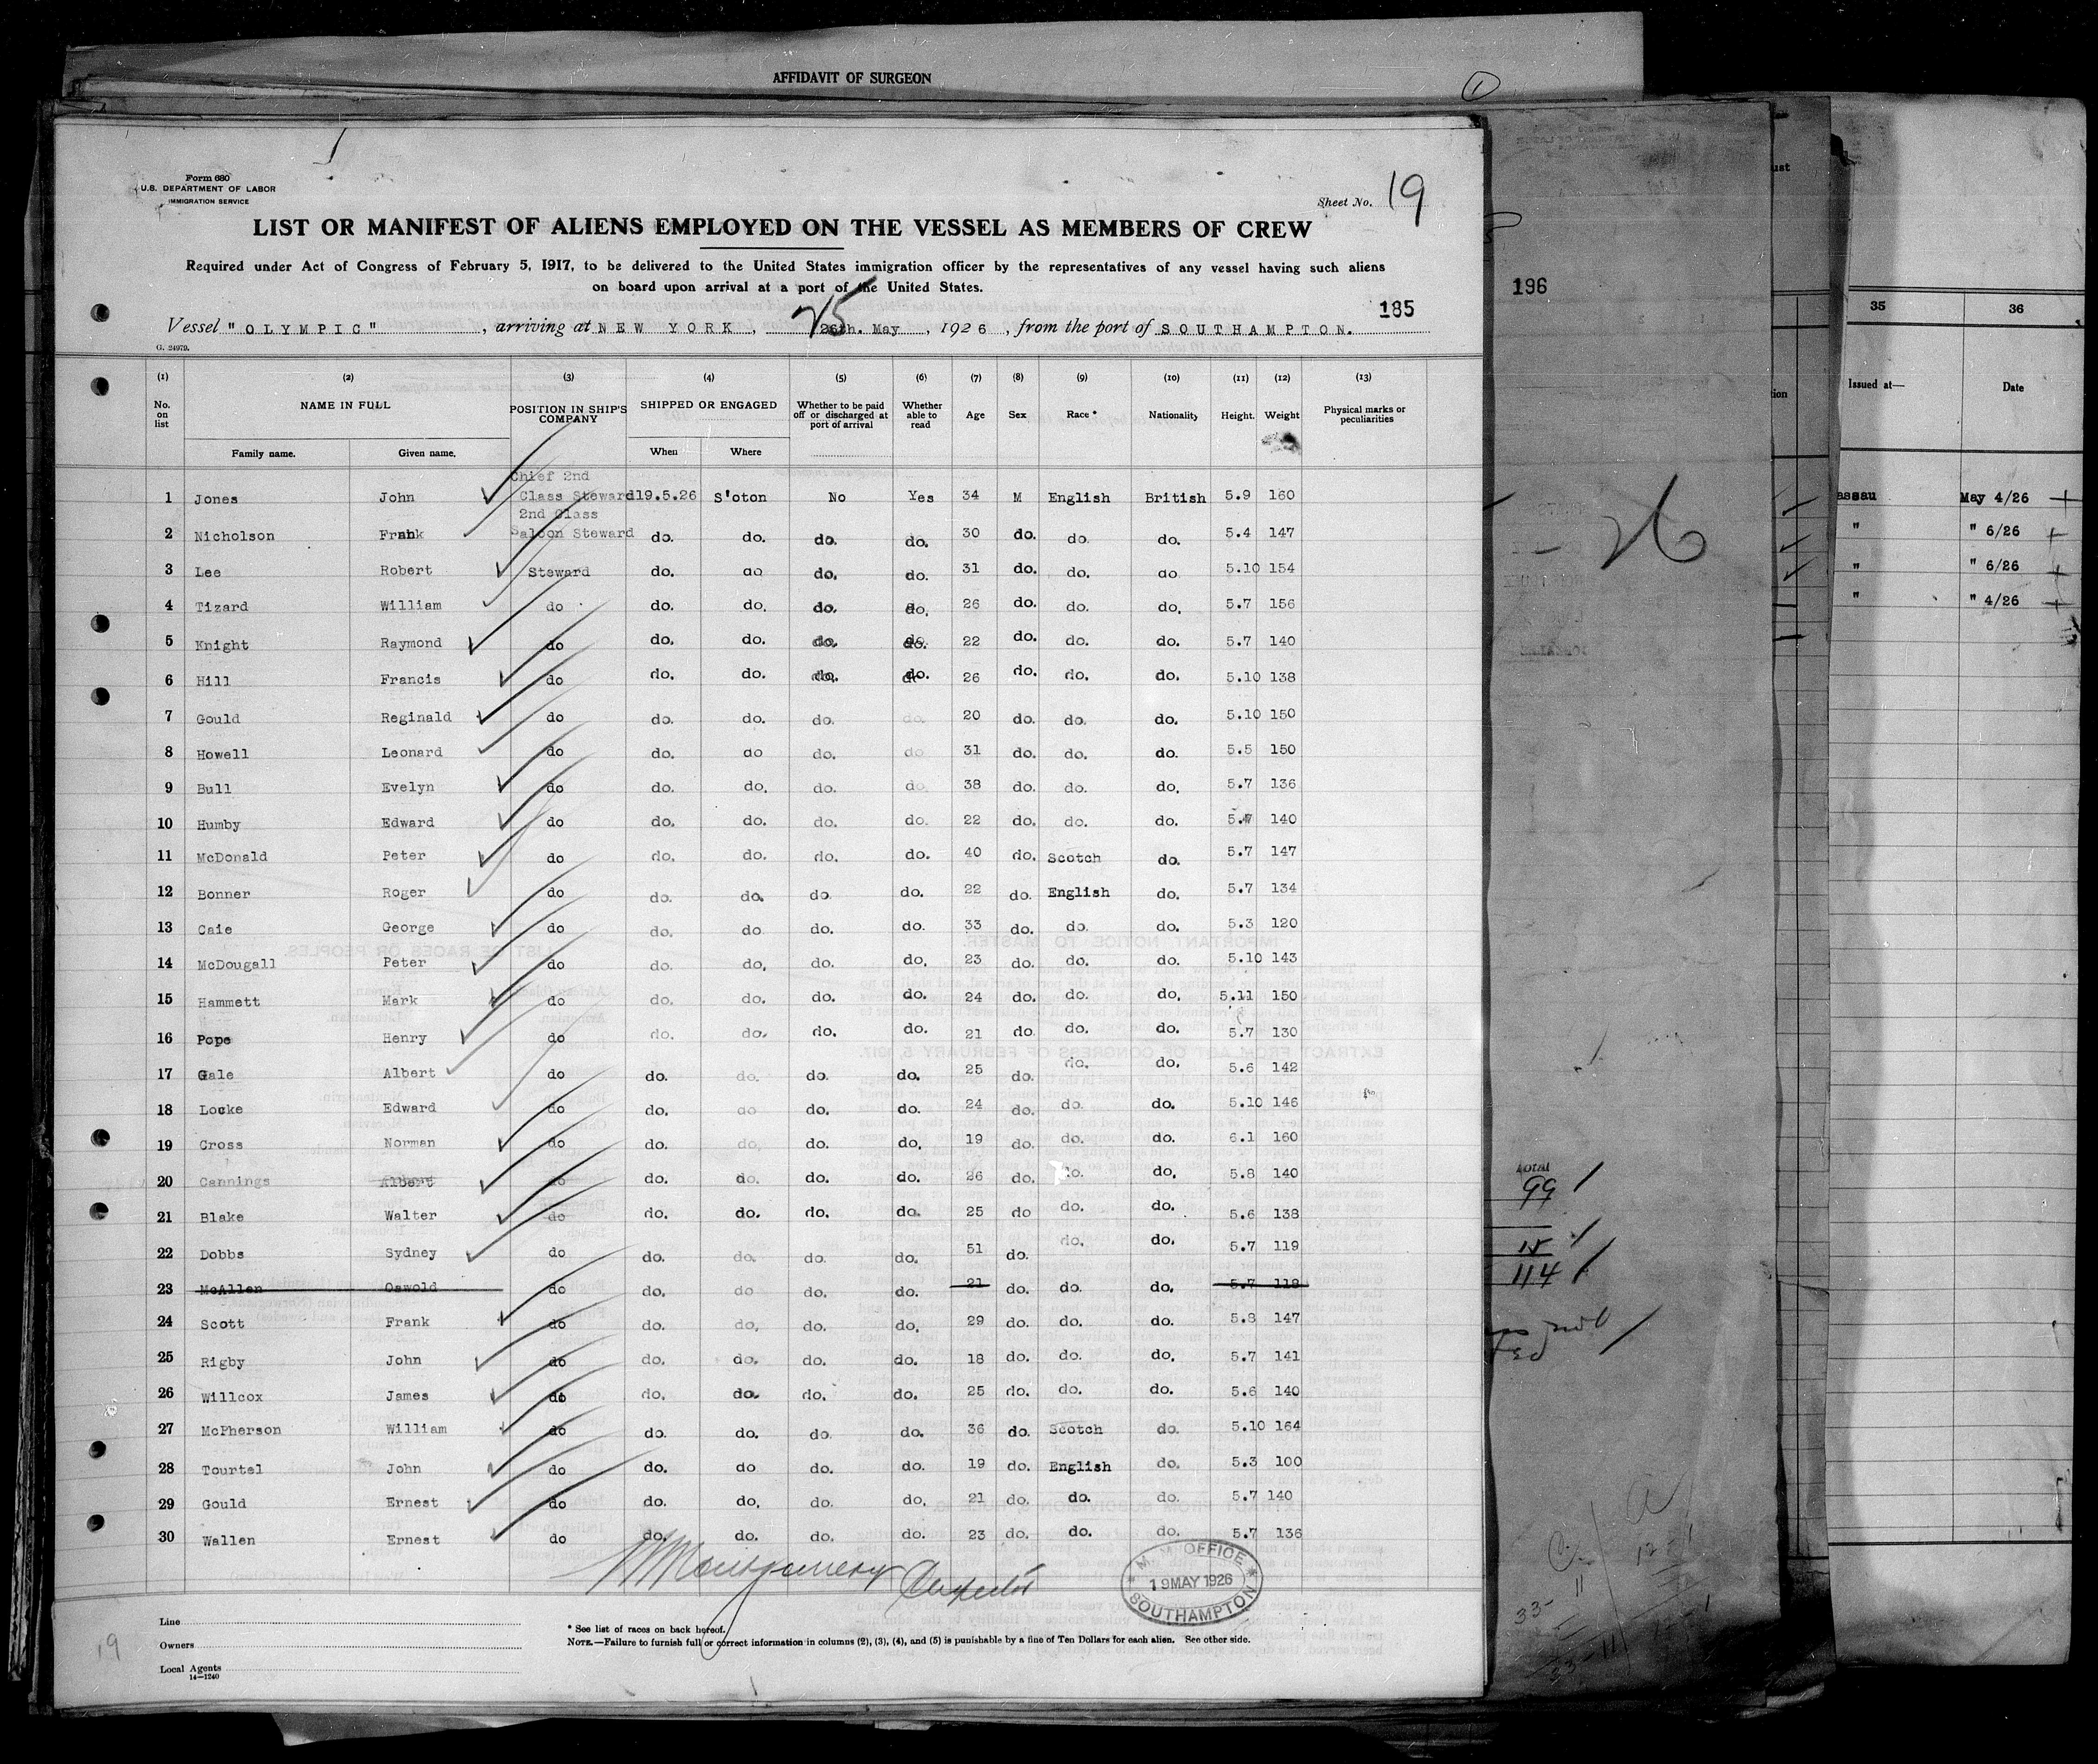 AFFIDAVIT OF SURGEON
1
Form 680
U.S. DEPARTMENT OF LABOR
IMMIGRATION SERVICE
Sheet No. 19
LIST OR MANIFEST OF ALIENS EMPLOYED ON THE VESSEL AS MEMBERS OF CREW
Required under Act of Congress of February 5, 1917, to be delivered to the United States immigration officer by the representatives of any vessel having such aliens
on board upon arrival at a port of the United States.
185
25
Vessel "OLYMPIC", arriving at NEW YORK, 26th. May, 1926, from the port of SOUTHAMPTON.
G. 24979.
(1) (2) (3) (4) (5) (6) (7) (8) (9) (10) (11) (12) (13)
No. on list NAME IN FULL POSITION IN SHIP'S COMPANY SHIPPED OR ENGAGED Whether to be paid off or discharged at port of arrival Whether able to read Age Sex Race * Nationality Height. Weight Physical marks or peculiarities
Family name. Given name. When Where
1 Jones John Chief 2nd Class Steward 19.5.26 S'oton No Yes 34 M English British 5.9 160
2 Nicholson Frank 2nd Class Saloon Steward do. do. do. do. 30 do. do. do. 5.4 147
3 Lee Robert Steward do. do do. do. 31 do. do. do 5.10 154
4 Tizard William do do. do. do. do. 26 do. do. do. 5.7 156
5 Knight Raymond do do. do. do. do. 22 do. do. do. 5.7 140
6 Hill Francis do do. do. do. do. 26 do. do. do. 5.10 138
7 Gould Reginald do do. do. do. do. 20 do. do. do. 5.10 150
8 Howell Leonard do do. do do. do 31 do. do. do. 5.5 150
9 Bull Evelyn do do. do. do. do. 38 do. do. do. 5.7 136
10 Humby Edward do do. do. do. do. 22 do. do. do. 5.7 140
11 McDonald Peter do do. do. do. do. 40 do. Scotch do. 5.7 147
12 Bonner Roger do do. do. do. do. 22 do. English do. 5.7 134
13 Caie George do do. do do. do. 33 do. do. do. 5.3 120
14 McDougall Peter do do. do. do. do. 23 do. do. do. 5.10 143
15 Hammett Mark do do. do. do. do. 24 do. do. do. 5.11 150
16 Pope Henry do do. do. do. do. 21 do. do. do. 5.7 130
17 Gale Albert do do. do. do. do. 25 do. do. do. 5.6 142
18 Locke Edward do do. do do. do. 24 do. do. do. 5.10 146
19 Cross Norman do do. do. do. do. 19 do. do. do. 6.1 160
20 Cannings Albert do do. do. do. do. 26 do. do. do. 5.8 140
21 Blake Walter do do. do. do. do. 25 do do. do. 5.6 138
22 Dobbs Sydney do do. do. do. do. 51 do. do. do. 5.7 119
23 McAllen Oswold do do. do do. do. 21 do. do. do. 5.7 118
24 Scott Frank do do. do. do. do. 29 do. do. do. 5.8 147
25 Rigby John do do. do. do. do. 18 do. do. do. 5.7 141
26 Willcox James do do. do. do. do. 25 do. do. do. 5.6 140
27 McPherson William do do. do. do. do. 36 do. Scotch do. 5.10 164
28 Tourtel John do do. do do. do. 19 do. English do. 5.3 100
29 Gould Ernest do do. do. do. do. 21 do. do. do. 5.7 140
30 Wallen Ernest do do. do. do. do. 23 do. do. do. 5.7 136
Montgomery
M.M. OFFICE
19 MAY 1926
SOUTHAMPTON
Line
Owners
Local Agents
14—1240
* See list of races on back hereof.
NOTE.—Failure to furnish full or correct information in columns (2), (3), (4), and (5) is punishable by a fine of Ten Dollars for each alien. See other side.
19
196
26
total
99
15
114
35 36
Issued at— Date
assau May 4/26
" " 6/26
" " 6/26
" " 4/26